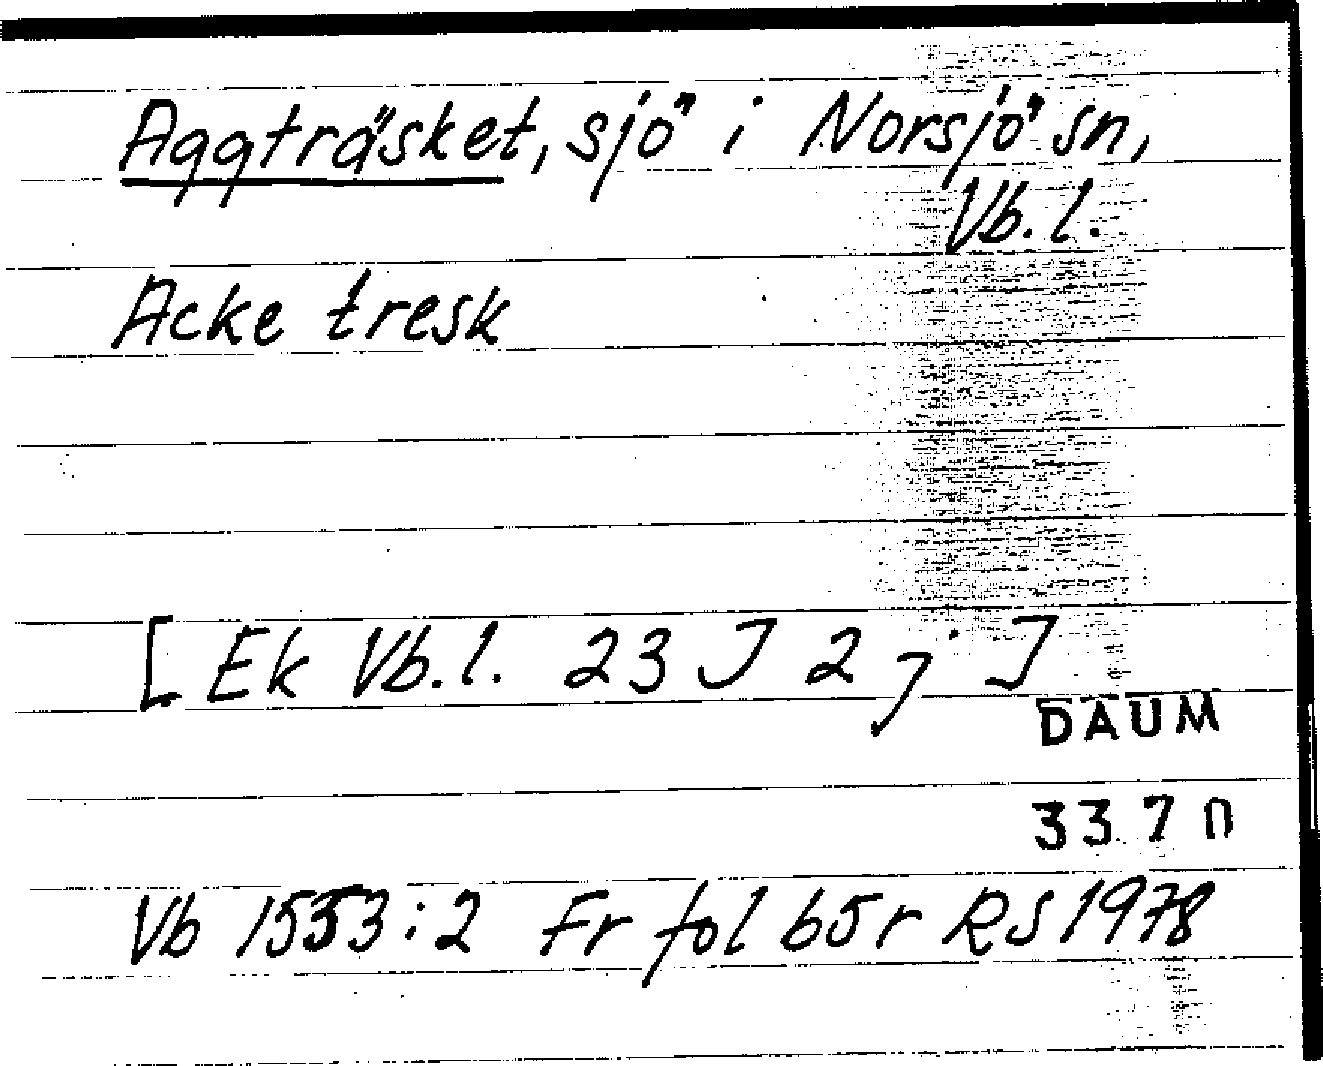 Aggträsket, sjö i Norsjö sn,
Vb. l.
Acke tresk
[ Ek Vb. l. 23 J 2 j ]
DAUM
3370
Vb 1553:2 Fr fol 65 r RS 1978